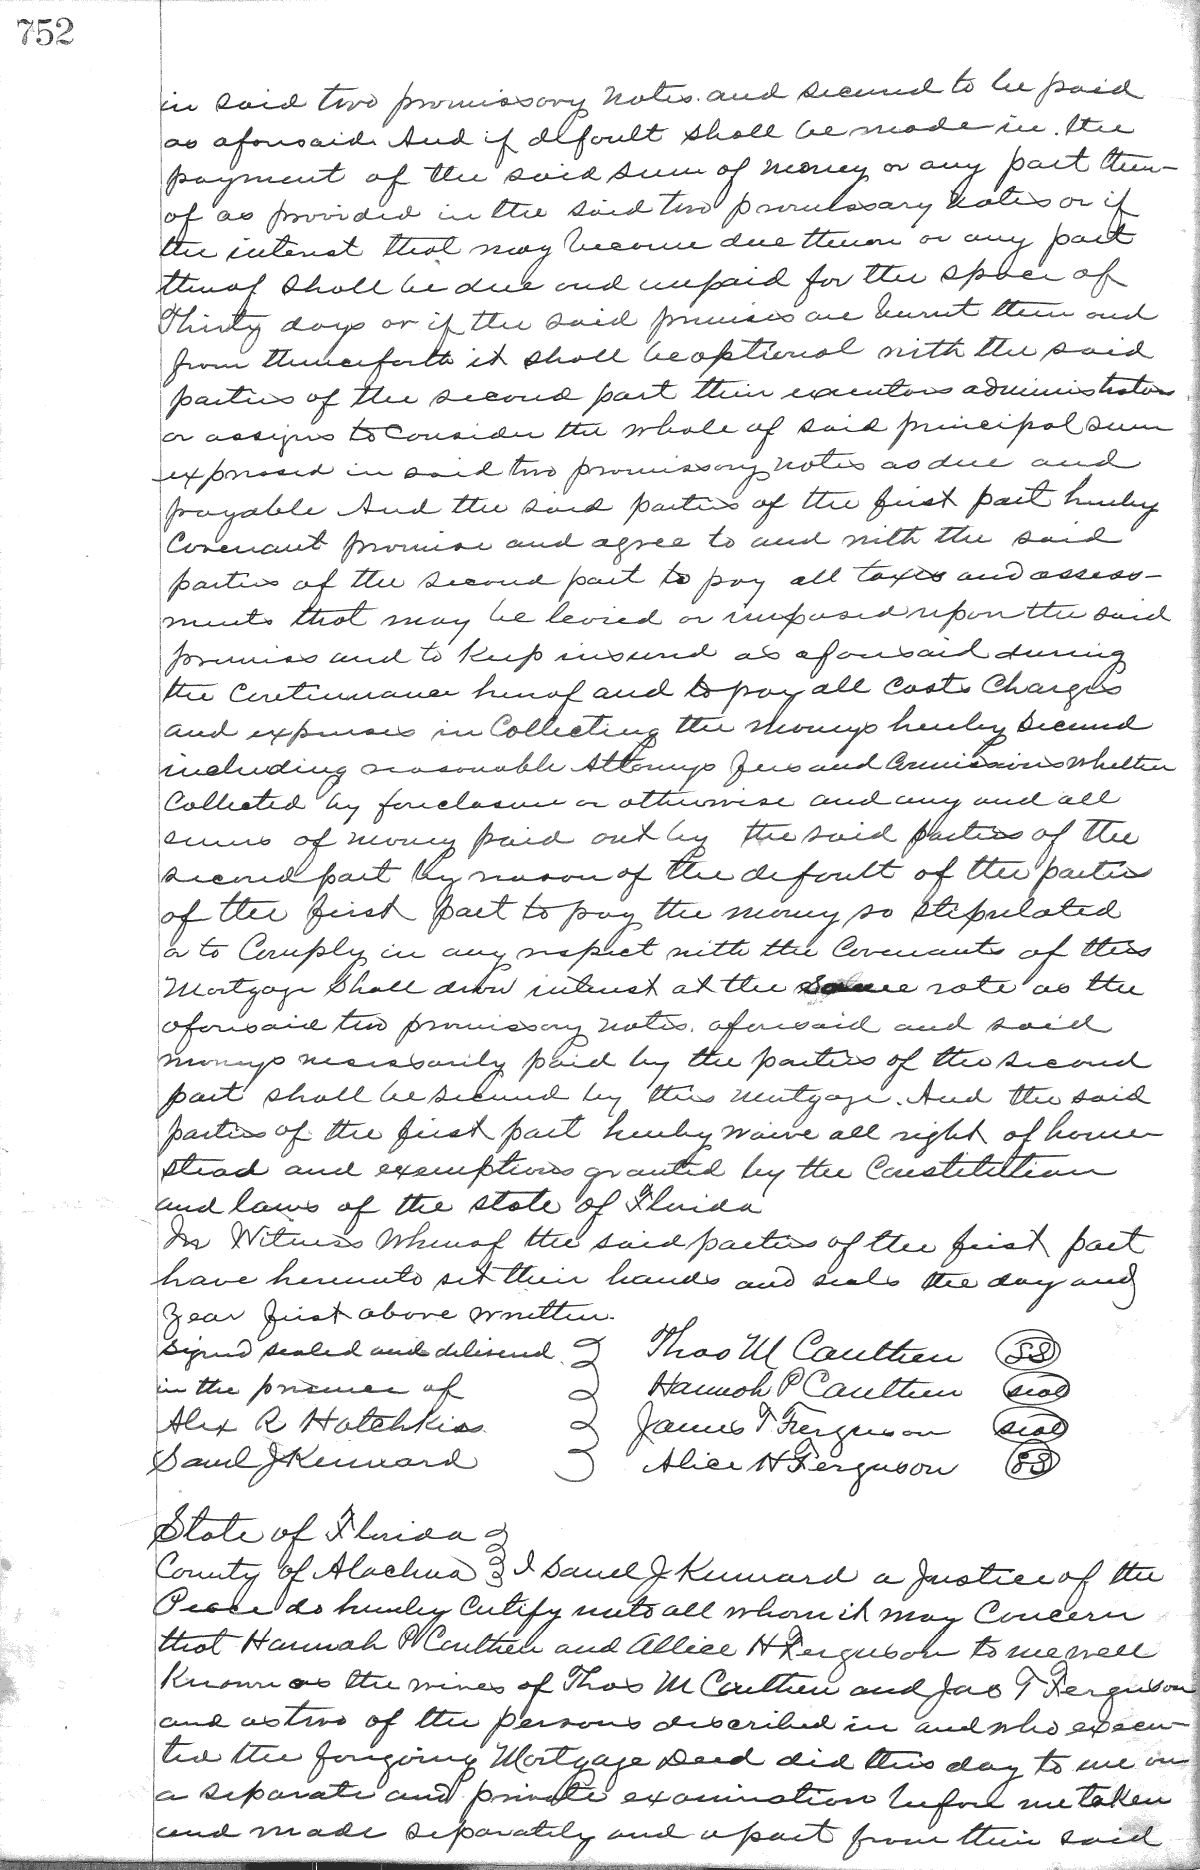 752
in said two promissory notes and secured to be paid
as aforesaid. And if default shall be made in the
payment of the said sum of money or any part there-
of as provided in the said two promissory notes or if
the interest that may become due thereon or any part
thereof shall be due and unpaid for the space of
Thirty days or if the said premises are burnt then and
from thenceforth it shall be optional with the said
parties of the second part their executors administrators
or assigns to consider the whole of said principal sum
expressed in said two promissory notes as due and
payable And the said parties of the first part hereby
Covenant promise and agree to and with the said
parties of the second part to pay all taxes and assess-
ments that may be levied or imposed upon the said
premises and to keep insured as aforesaid during
the continuance hereof and to pay all costs charges
and expenses in Collecting the moneys hereby secured
including reasonable Attorneys fees and Commissions whether
Collected by foreclosure or otherwise and any and all
sums of money paid out by the said parties of the
second part by reason of the default of the parties
of the first part to pay the money so stipulated
or to Comply in any respect with the Covenants of this
Mortgage Shall draw interest at the same rate as the
aforesaid two promissory notes. aforesaid and said
moneys necessarily paid by the parties of the second
part shall be secured by this mortgage. And the said
parties of the first part hereby waive all right of home-
stead and exemptions granted by the Constitution
and laws of the state of Florida
In Witness Whereof the said parties of the first part
have hereunto set their hands and seals the day and
year first above written.
Signed sealed and delivered Thos M Cauthen SS
in the presence of Hannah P Cauthen seal
Alex R Hotchkiss James T Ferguson seal
Saml J Kennard Alice H Ferguson SS
State of Florida
County of Alachua I Saml J Kennard a Justice of the
Peace do hereby Certify unto all whom it may Concern
that Hannah P Cauthen and Allice H Ferguson to me well
Known as the wives of Thos M Cauthen and Jas T Ferguson
and as two of the persons described in and who execu-
ted the foregoing Mortgage Deed did this day to me on
a separate and private examination before me taken
and made separately and apart from their said